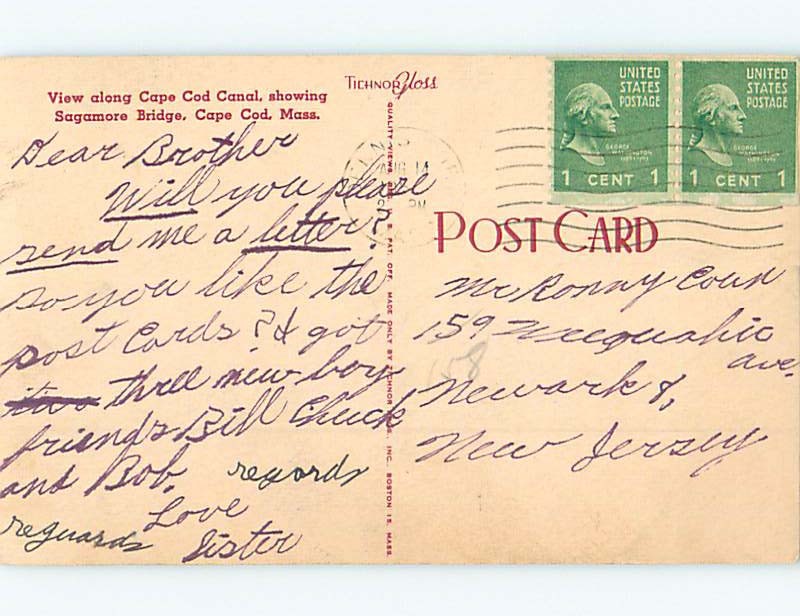 View along Cape Cod Canal, showing
Sagamore Bridge, Cape Cod, Mass.
TICHNOR Gloss
QUALITY VIEWS
PAT. OFF. MADE ONLY BY TICHNOR BROS. INC. BOSTON 15, MASS.
UNITED
STATES
POSTAGE
GEORGE
WASHINGTON
1789-1797
1 CENT 1
UNITED
STATES
POSTAGE
GEORGE
WASHINGTON
1789-1797
1 CENT 1
AUG 14
PM
POST CARD
Dear Brother
Will you please
send me a letter?
so you like the
post cards? I got
three new boy
friends Bill Chuck
and Bob.
regards
Love
reguards
Sister
Mr Ronny
159 Weequahic
ave.
Newark 8,
New Jersey
158